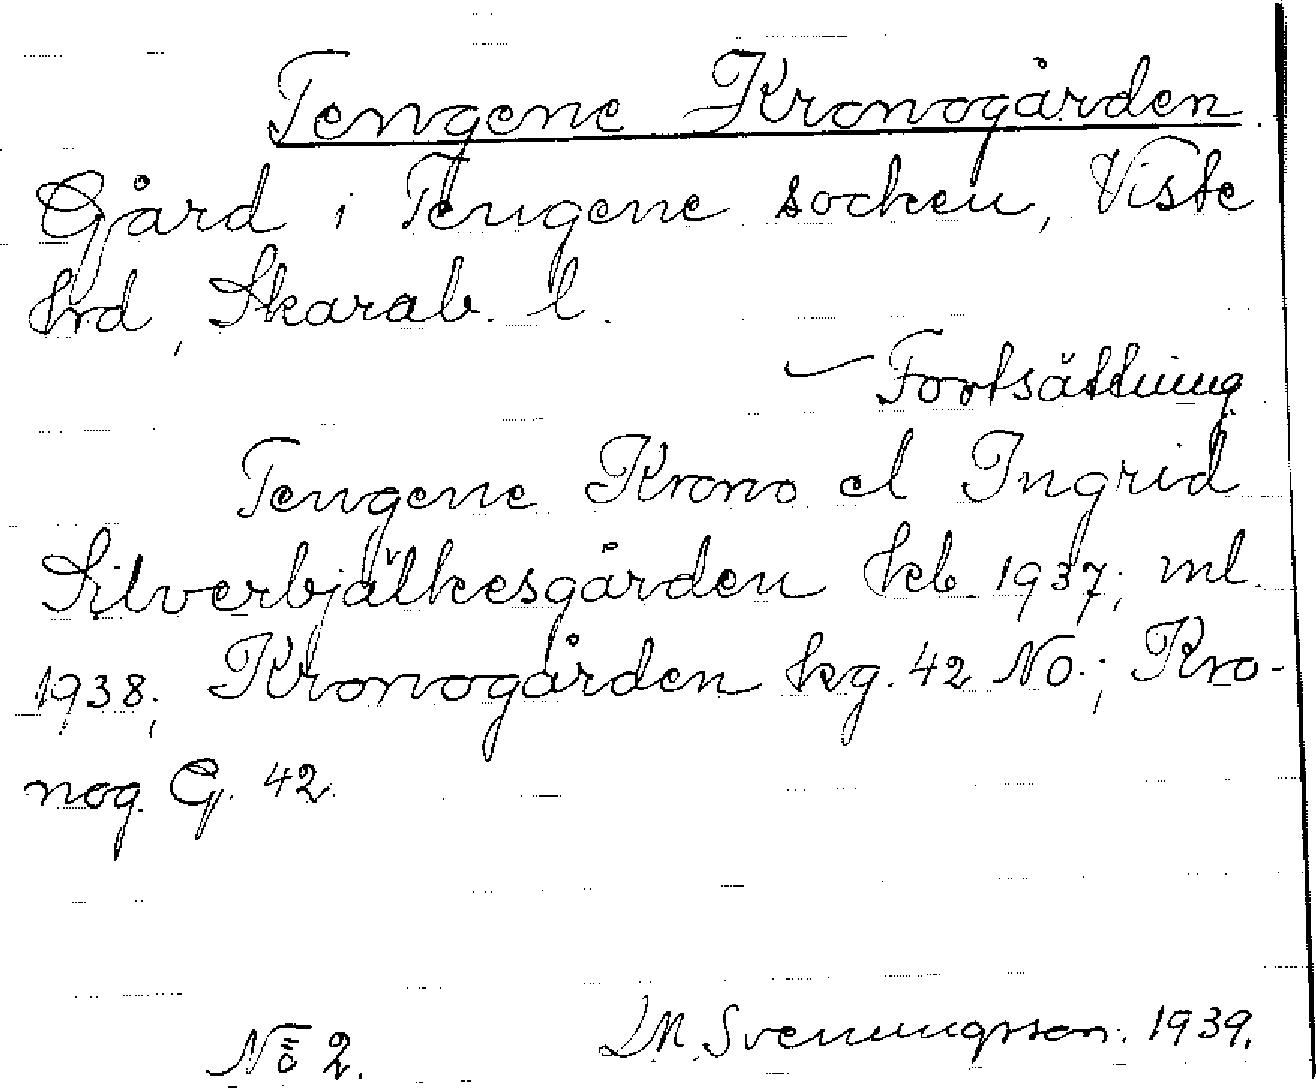 Tengene Kronogården.
Gård i Tengene socken, Viste
hrd, Skarab. l.
Fortsättning
Tengene Krono el Ingrid
Silverbjälkesgården kb 1937; ml.
1938; Kronogården kg. 42 NO.; Kro-
nog. G. 42.
No 2. DM. Svenungsson. 1939.